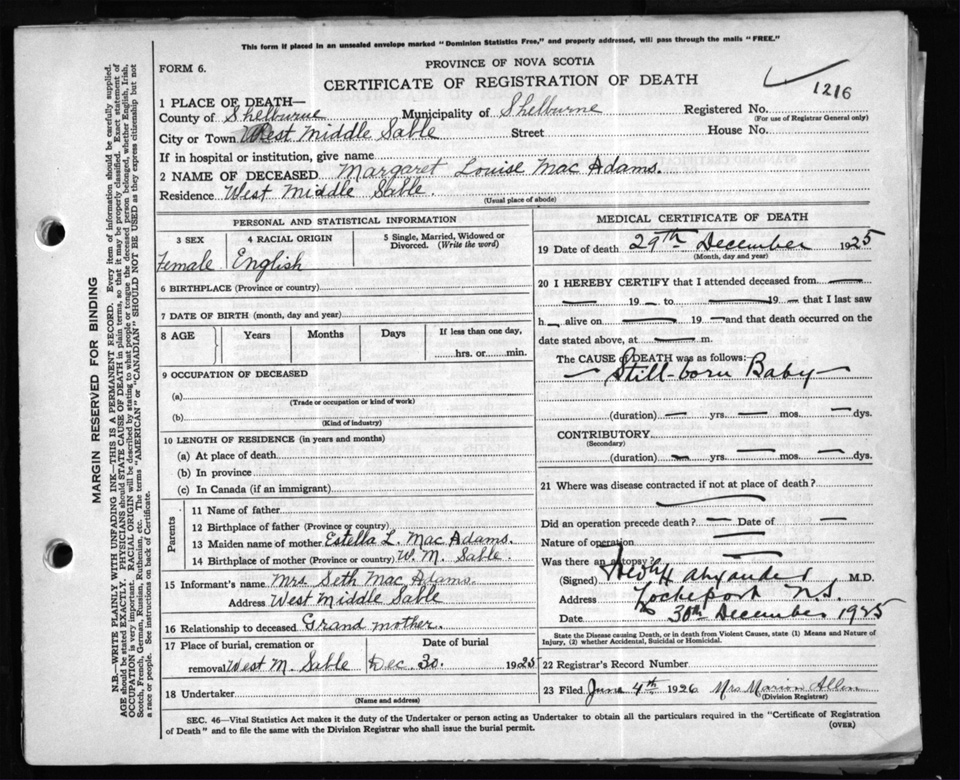 This form if placed in an unsealed envelope marked "Dominion Statistics Free," and properly addressed, will pass through the mails "FREE."
FORM 6.
PROVINCE OF NOVA SCOTIA
CERTIFICATE OF REGISTRATION OF DEATH
1216
1 PLACE OF DEATH—
County of Shelburne Municipality of Shelburne Registered No.
(For use of Registrar General only)
City or Town West Middle Sable Street House No.
If in hospital or institution, give name
2 NAME OF DECEASED Margaret Louise Mac Adams.
Residence West Middle Sable.
(Usual place of abode)
MARGIN RESERVED FOR BINDING
N.B.—WRITE PLAINLY WITH UNFADING INK—THIS IS A PERMANENT RECORD. Every item of information should be carefully supplied.
AGE should be stated EXACTLY. PHYSICIANS should STATE CAUSE OF DEATH in plain terms, so that it may be properly classified. Exact statement of
OCCUPATION is very important. RACIAL ORIGIN will be described by stating to what people or tongue the deceased person belonged, whether English, Irish,
Scotch, French, German, Russian, Ruthenian, etc. The terms "AMERICAN" or "CANADIAN" SHOULD NOT BE USED as they express citizenship but not
a race or people. See instructions on back of Certificate.
PERSONAL AND STATISTICAL INFORMATION
3 SEX
Female
4 RACIAL ORIGIN
English
5 Single, Married, Widowed or
Divorced. (Write the word)
6 BIRTHPLACE (Province or country)
7 DATE OF BIRTH (month, day and year)
8 AGE Years Months Days If less than one day,
hrs. or min.
9 OCCUPATION OF DECEASED
(a)
(Trade or occupation or kind of work)
(b)
(Kind of industry)
10 LENGTH OF RESIDENCE (in years and months)
(a) At place of death
(b) In province
(c) In Canada (if an immigrant)
Parents
11 Name of father
12 Birthplace of father (Province or country)
13 Maiden name of mother Estella L. Mac Adams.
14 Birthplace of mother (Province or country) W. M. Sable.
15 Informant's name Mrs Seth Mac Adams.
Address West Middle Sable
16 Relationship to deceased Grand mother.
17 Place of burial, cremation or Date of burial
removal West M. Sable Dec. 30. 1925
18 Undertaker
(Name and address)
MEDICAL CERTIFICATE OF DEATH
19 Date of death 29th December 1925
(Month, day and year)
20 I HEREBY CERTIFY that I attended deceased from
— 19 — to — 19 — that I last saw
h — alive on — 19 — and that death occurred on the
date stated above, at — m.
The CAUSE OF DEATH was as follows:
— Still-born Baby —
(duration) — yrs. — mos. — dys.
CONTRIBUTORY
(Secondary)
(duration) — yrs. — mos. — dys.
21 Where was disease contracted if not at place of death?
Did an operation precede death? — Date of —
Nature of operation
Was there an autopsy?
(Signed) M.D.
Address Lockeport N.S.
Date 30th December 1925
State the Disease causing Death, or in death from Violent Causes, state (1) Means and Nature of
Injury, (2) whether Accidental, Suicidal or Homicidal.
22 Registrar's Record Number
23 Filed June 4th 1926 Mrs Marion Allen
(Division Registrar)
SEC. 46—Vital Statistics Act makes it the duty of the Undertaker or person acting as Undertaker to obtain all the particulars required in the "Certificate of Registration
of Death" and to file the same with the Division Registrar who shall issue the burial permit.
(OVER)